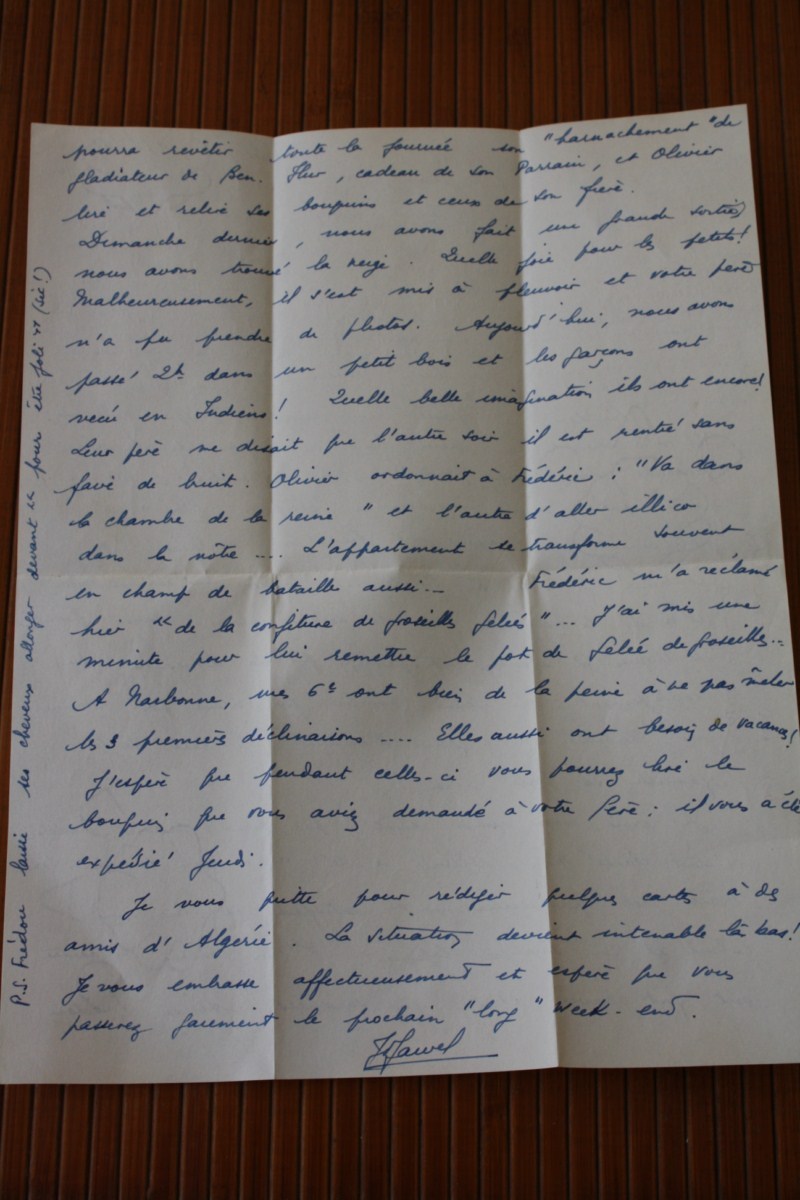 pourra revêtir toute la journée son "harnachement" de
gladiateur de Ben-Hur, cadeau de son Parrain, et Olivier
lire et relire ses bouquins et ceux de son frère.
Dimanche dernier, nous avons fait une grande sortie,
nous avons trouvé la neige. Quelle joie pour les petits!
Malheureusement, il s'est mis à pleuvoir et votre père
n'a pu prendre de photos. Aujourd'hui, nous avons
passé 2h dans un petit bois et les garçons ont
vécu en Indiens! Quelle belle imagination ils ont encore!
Leur père me disait que l'autre soir il est rentré sans
faire de bruit. Olivier ordonnait à Frédéric : "Va dans
la chambre de la reine" et l'autre d'aller illico
dans la nôtre .... L'appartement se transforme souvent
en champ de bataille aussi...  Frédéric m'a réclamé
hier "de la confiture de groseilles gelées"... J'ai mis une
minute pour lui remettre le pot de gelée de groseilles...
A Narbonne, mes 6e ont bien de la peine à ne pas mêler
les 3 premières déclinaisons .... Elles aussi ont besoin de vacances!
J'espère que pendant celles-ci vous pourrez lire le
bouquin que vous aviez demandé à votre Père : il vous a été
expédié Jeudi.
Je vous quitte pour rédiger quelques cartes à des
amis d'Algérie. La situation devient intenable là bas!
Je vous embrasse affectueusement et espère que vous
passerez gaiement le prochain "long" week-end.
P.S. Frédou laisse ses cheveux allonger devant "pour être joli" (sic!)